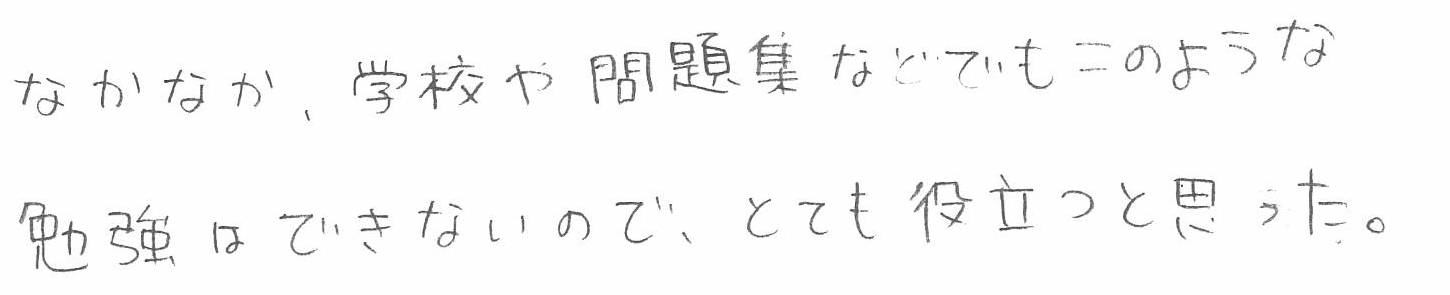 なかなか、学校や問題集などでもこのような
勉強はできないので、とても役立つと思った。